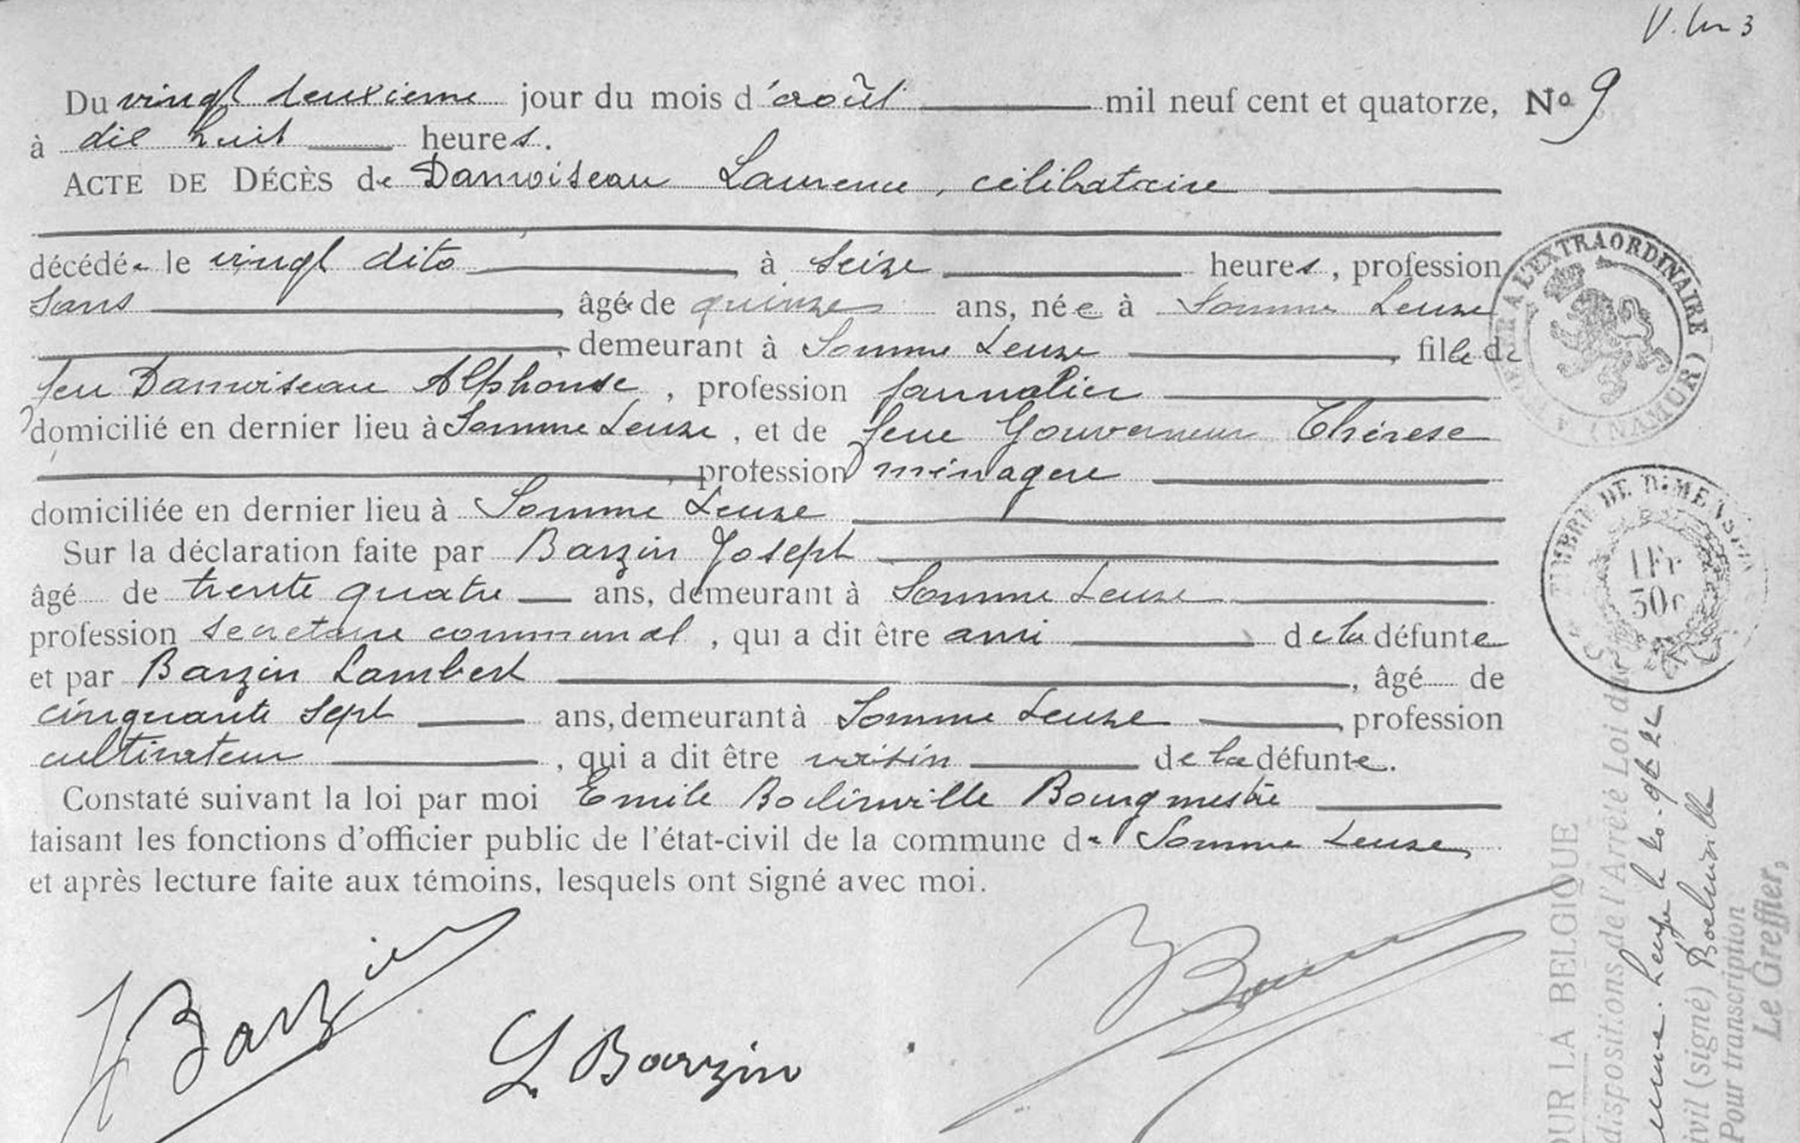 V. 3
Du vingt deuxieme jour du mois d'août mil neuf cent et quatorze, No 9
à dix huit heures.
ACTE DE DÉCÈS de Damoiseau Laurence, célibataire
décédée le vingt dito à seize heures, profession
sans âgé de quinze ans, née à Somme Leuze
, demeurant à Somme Leuze, fille de
feu Damoiseau Alphonse, profession journalier
domicilié en dernier lieu à Somme Leuze, et de feue Gouverneur Thérèse
profession ménagère
domiciliée en dernier lieu à Somme Leuze
Sur la déclaration faite par Barzin Joseph
âgé de trente quatre ans, demeurant à Somme Leuze
profession secretaire communal, qui a dit être ami de la défunte
et par Barzin Lambert, âgé de
cinquante sept ans, demeurant à Somme Leuze, profession
cultivateur, qui a dit être voisin de la défunte.
Constaté suivant la loi par moi Emile Bourgmestre
faisant les fonctions d'officier public de l'état-civil de la commune de Somme Leuze
et après lecture faite aux témoins, lesquels ont signé avec moi.
J Barzin
L Barzin
A L'EXTRAORDINAIRE (NAMUR)
TIMBRE DE DIMENSION
1 Fr
30 c
OUR LA BELGIQUE
dispositions de l'Arrêté Loi du
ivil (signé)
Pour transcription
Le Greffier,